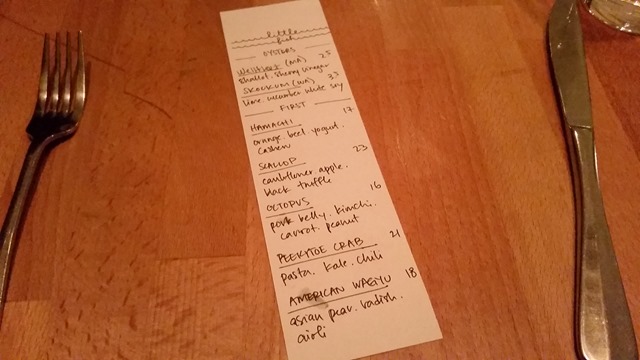 little
fish
OYSTERS
Wellfleet (MA) 2.5
shallot. sherry vinegar
SKOOKUM (WA) 3.5
lime. cucumber. white soy
FIRST
HAMACHI 17
orange. beet. yogurt.
cashew
SCALLOP 23
cauliflower. apple.
black truffle
OCTOPUS 16
pork belly. kimchi.
carrot. peanut
PEEKYTOE CRAB 21
pasta. kale. chili
AMERICAN WAGYU 18
asian pear. radish.
aioli